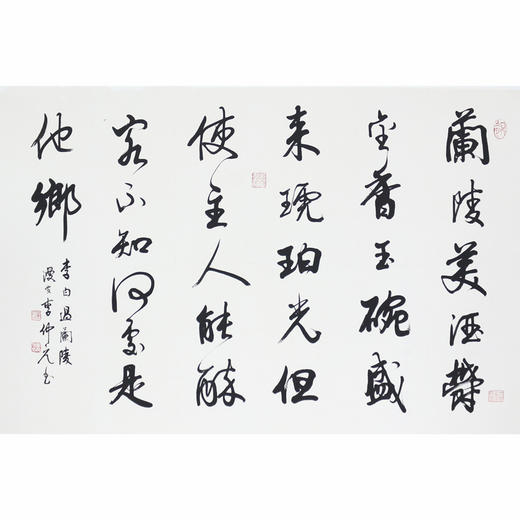 蘭陵美酒鬱
金香玉碗盛
来琥珀光但
使主人能醉
客不知何處是
他鄉
李白過蘭陵
李仲元書